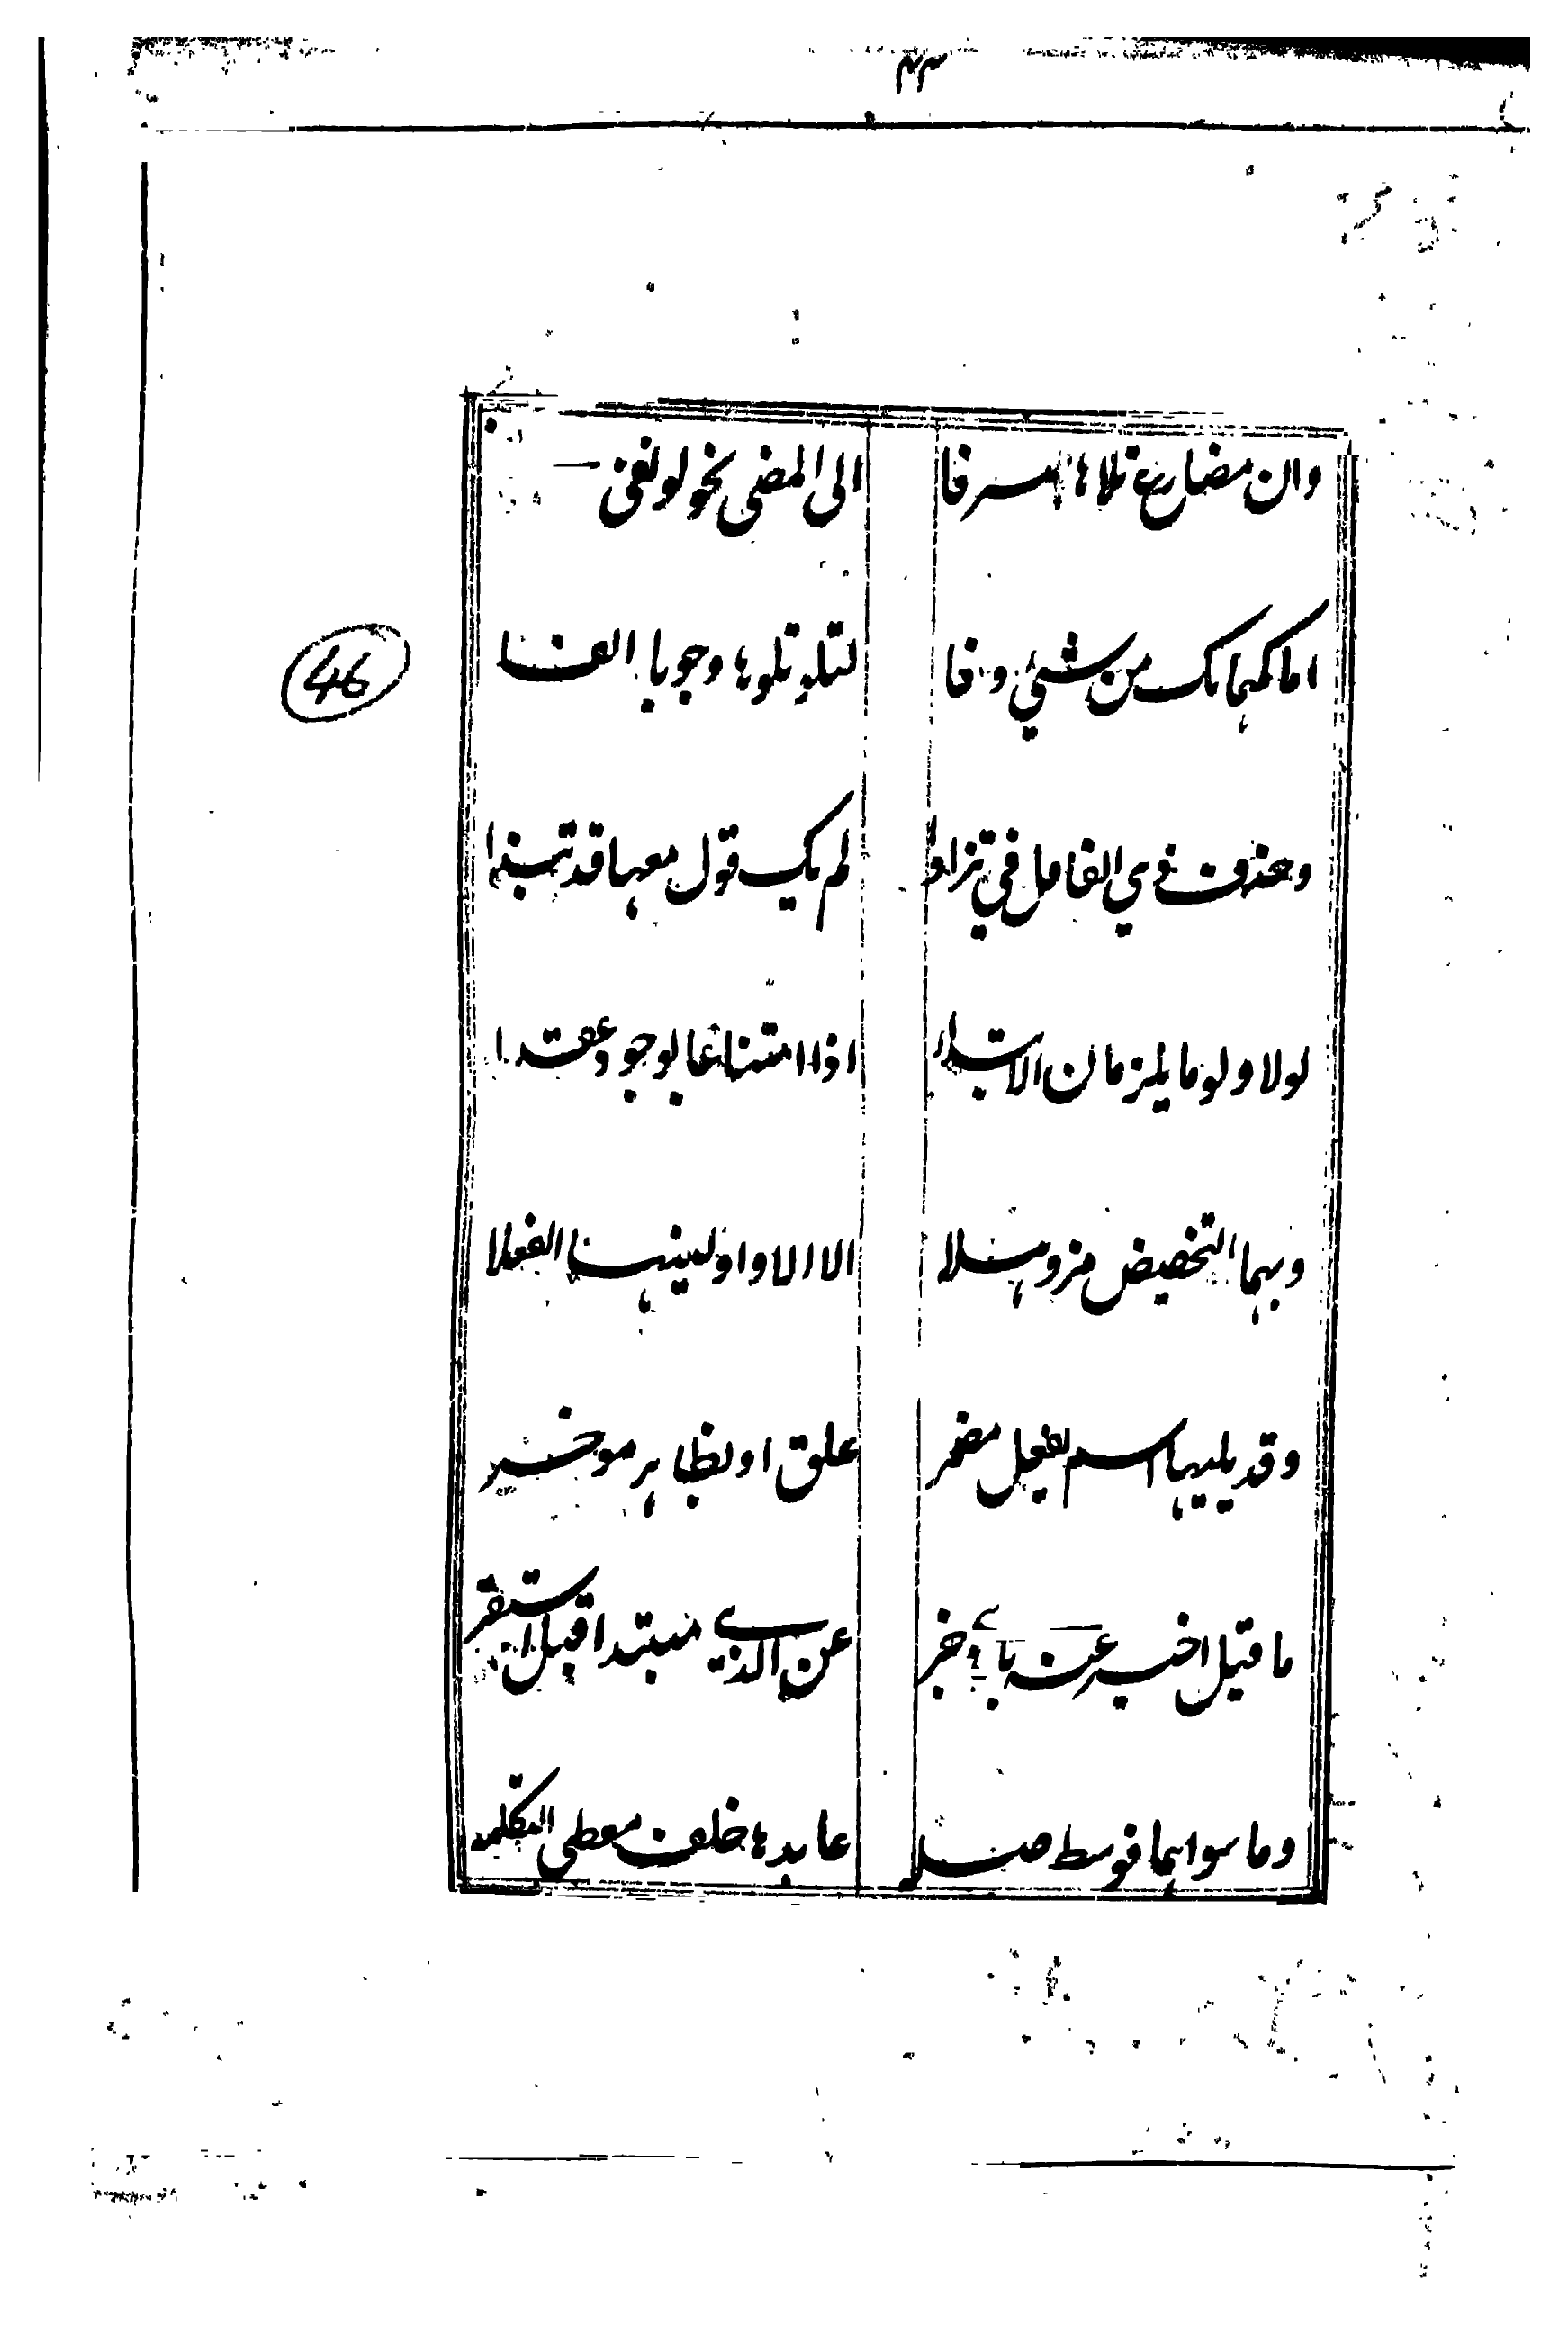 ٤٣
وان مضارع تلاها صرفا الى المضى نحو لو يفى
اما كمهما يك من شيئ وفا لتلو تلوها وجوبا الفا
وحذف ذي الفا قل في نثر اذا لم يك قول معها قد نبذا
لولا ولوما يلزمان الابتدا اذا امتناعا بوجود عقدا
وبهما التحضيض مز وهلا الا الا واولينها الفعلا
وقد يليها اسم بفعل مضمر علق او بظاهر موخر
46
ما قيل اخبر عنه بالذي خبر عن الذي مبتدا قبل استقر
وما سواهما فوسطه صله عايدها خلف معطي التكمله